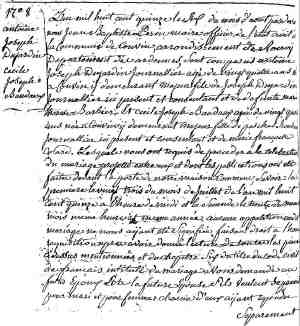 N° 8
antoine
Joseph
Dejardin
cecile
Joseph
Baudaux
L'an mil huit cent quinze le six du mois d'aout pardevant
nous Jean Baptiste maire officier de l'etat civil de
la commune de Couvin arrondissement de Rocroy
Departement des ardennes sont comparus antoine
Joseph Dejardin Journalier agé de vingt quatre ans né
a Couvin y demeurant majeur fils de Joseph Dejardin
journalier ici present et consentant et de defunte marie
Barbier et Cecile Joseph Baudaux agée de vingt
ans née a Couvin y demeurant fille de
journalier ici present et consentant et de marie françoise
lesquels nous ont requis de proceder a la celebration
du mariage projetté entre eux et dont les publications ont été
faites devant la porte de notre maison commune savoir la
premiere le vingt trois du mois de juillet de l'an mil huit
cent quinze a l'heure de midi et la seconde le trente du meme
mois meme heure et meme année aucune opposition au dit
mariage ne nous ayant été signifiée faisant droit a leur
requisition apres avoir donné lecture de toutes les pieces
ci dessus mentionnées et du chapitre six du titre du code civil
des français intitulé du mariage avons demandé au
futur epoux et a la future epouse s'ils veulent se prendre
pour mari et pour femme chacun d'eux ayant repondu
Separement